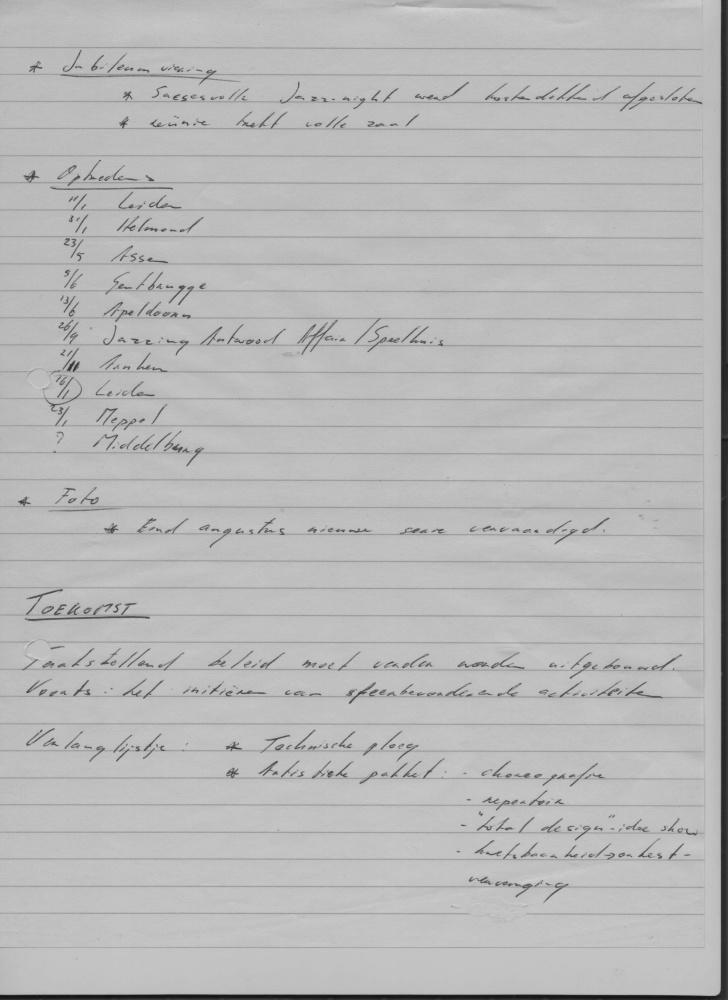 * Jubileumviering
* Succesvolle Jazz-night werd kostendekkend afgesloten
* reünie trekt volle zaal
* Optredens
11/1 Leiden
31/1 Helmond
23/5 Assen
5/6 Gentbrugge
13/6 Apeldoorn
26/9 Jazzing Antwoord Affair / Speelhuis
21/11 Arnhem
16/1 Leiden
23/1 Meppel
? Middelburg
* Foto
* Eind augustus nieuwe serie vervaardigd.
TOEKOMST
Taakstellend beleid moet verder worden uitgebouwd.
Voorts: het initiëren van sfeerbevorderende activiteiten
Verlanglijstje: * Technische ploeg
* Artistieke pakket: - choreografie
- repertoire
- "total design"-idee show
- kwetsbaarheid orkest-
vervanging